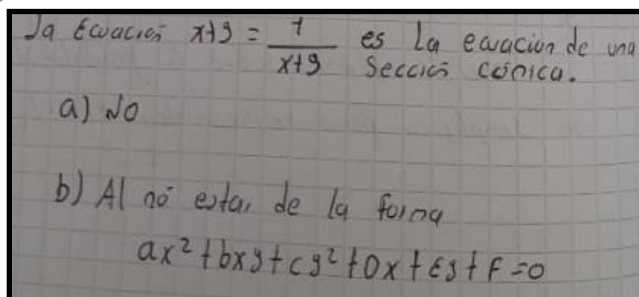 La Ecuación x+y = 1/(x+y) es La ecuacion de una
Sección cónica.
a) No
b) Al nó estar de la forma
ax² + bxy + cy² + Dx + Ey + F = 0